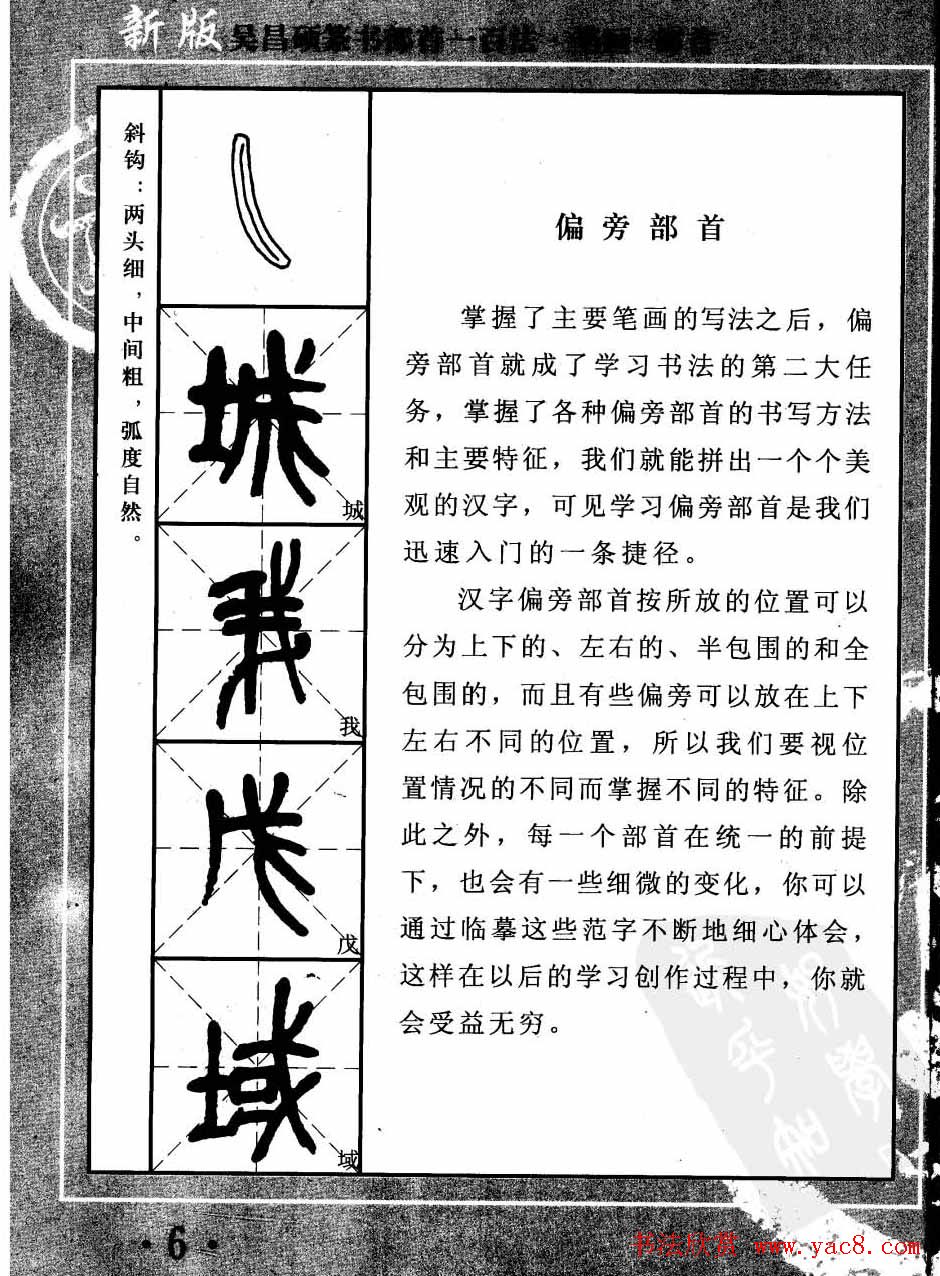 新版
吴昌硕篆书部首一百法
斜钩：两头细，中间粗，弧度自然。
城
我
戊
域
偏旁部首
掌握了主要笔画的写法之后，偏
旁部首就成了学习书法的第二大任
务，掌握了各种偏旁部首的书写方法
和主要特征，我们就能拼出一个个美
观的汉字，可见学习偏旁部首是我们
迅速入门的一条捷径。
汉字偏旁部首按所放的位置可以
分为上下的、左右的、半包围的和全
包围的，而且有些偏旁可以放在上下
左右不同的位置，所以我们要视位
置情况的不同而掌握不同的特征。除
此之外，每一个部首在统一的前提
下，也会有一些细微的变化，你可以
通过临摹这些范字不断地细心体会，
这样在以后的学习创作过程中，你就
会受益无穷。
·6·
书法欣赏 www.yac8.com